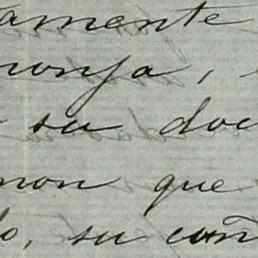 amente
monja,
su doc
mon que
lo, su con